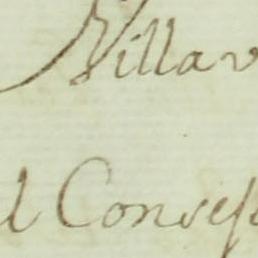 Villav
l Conse